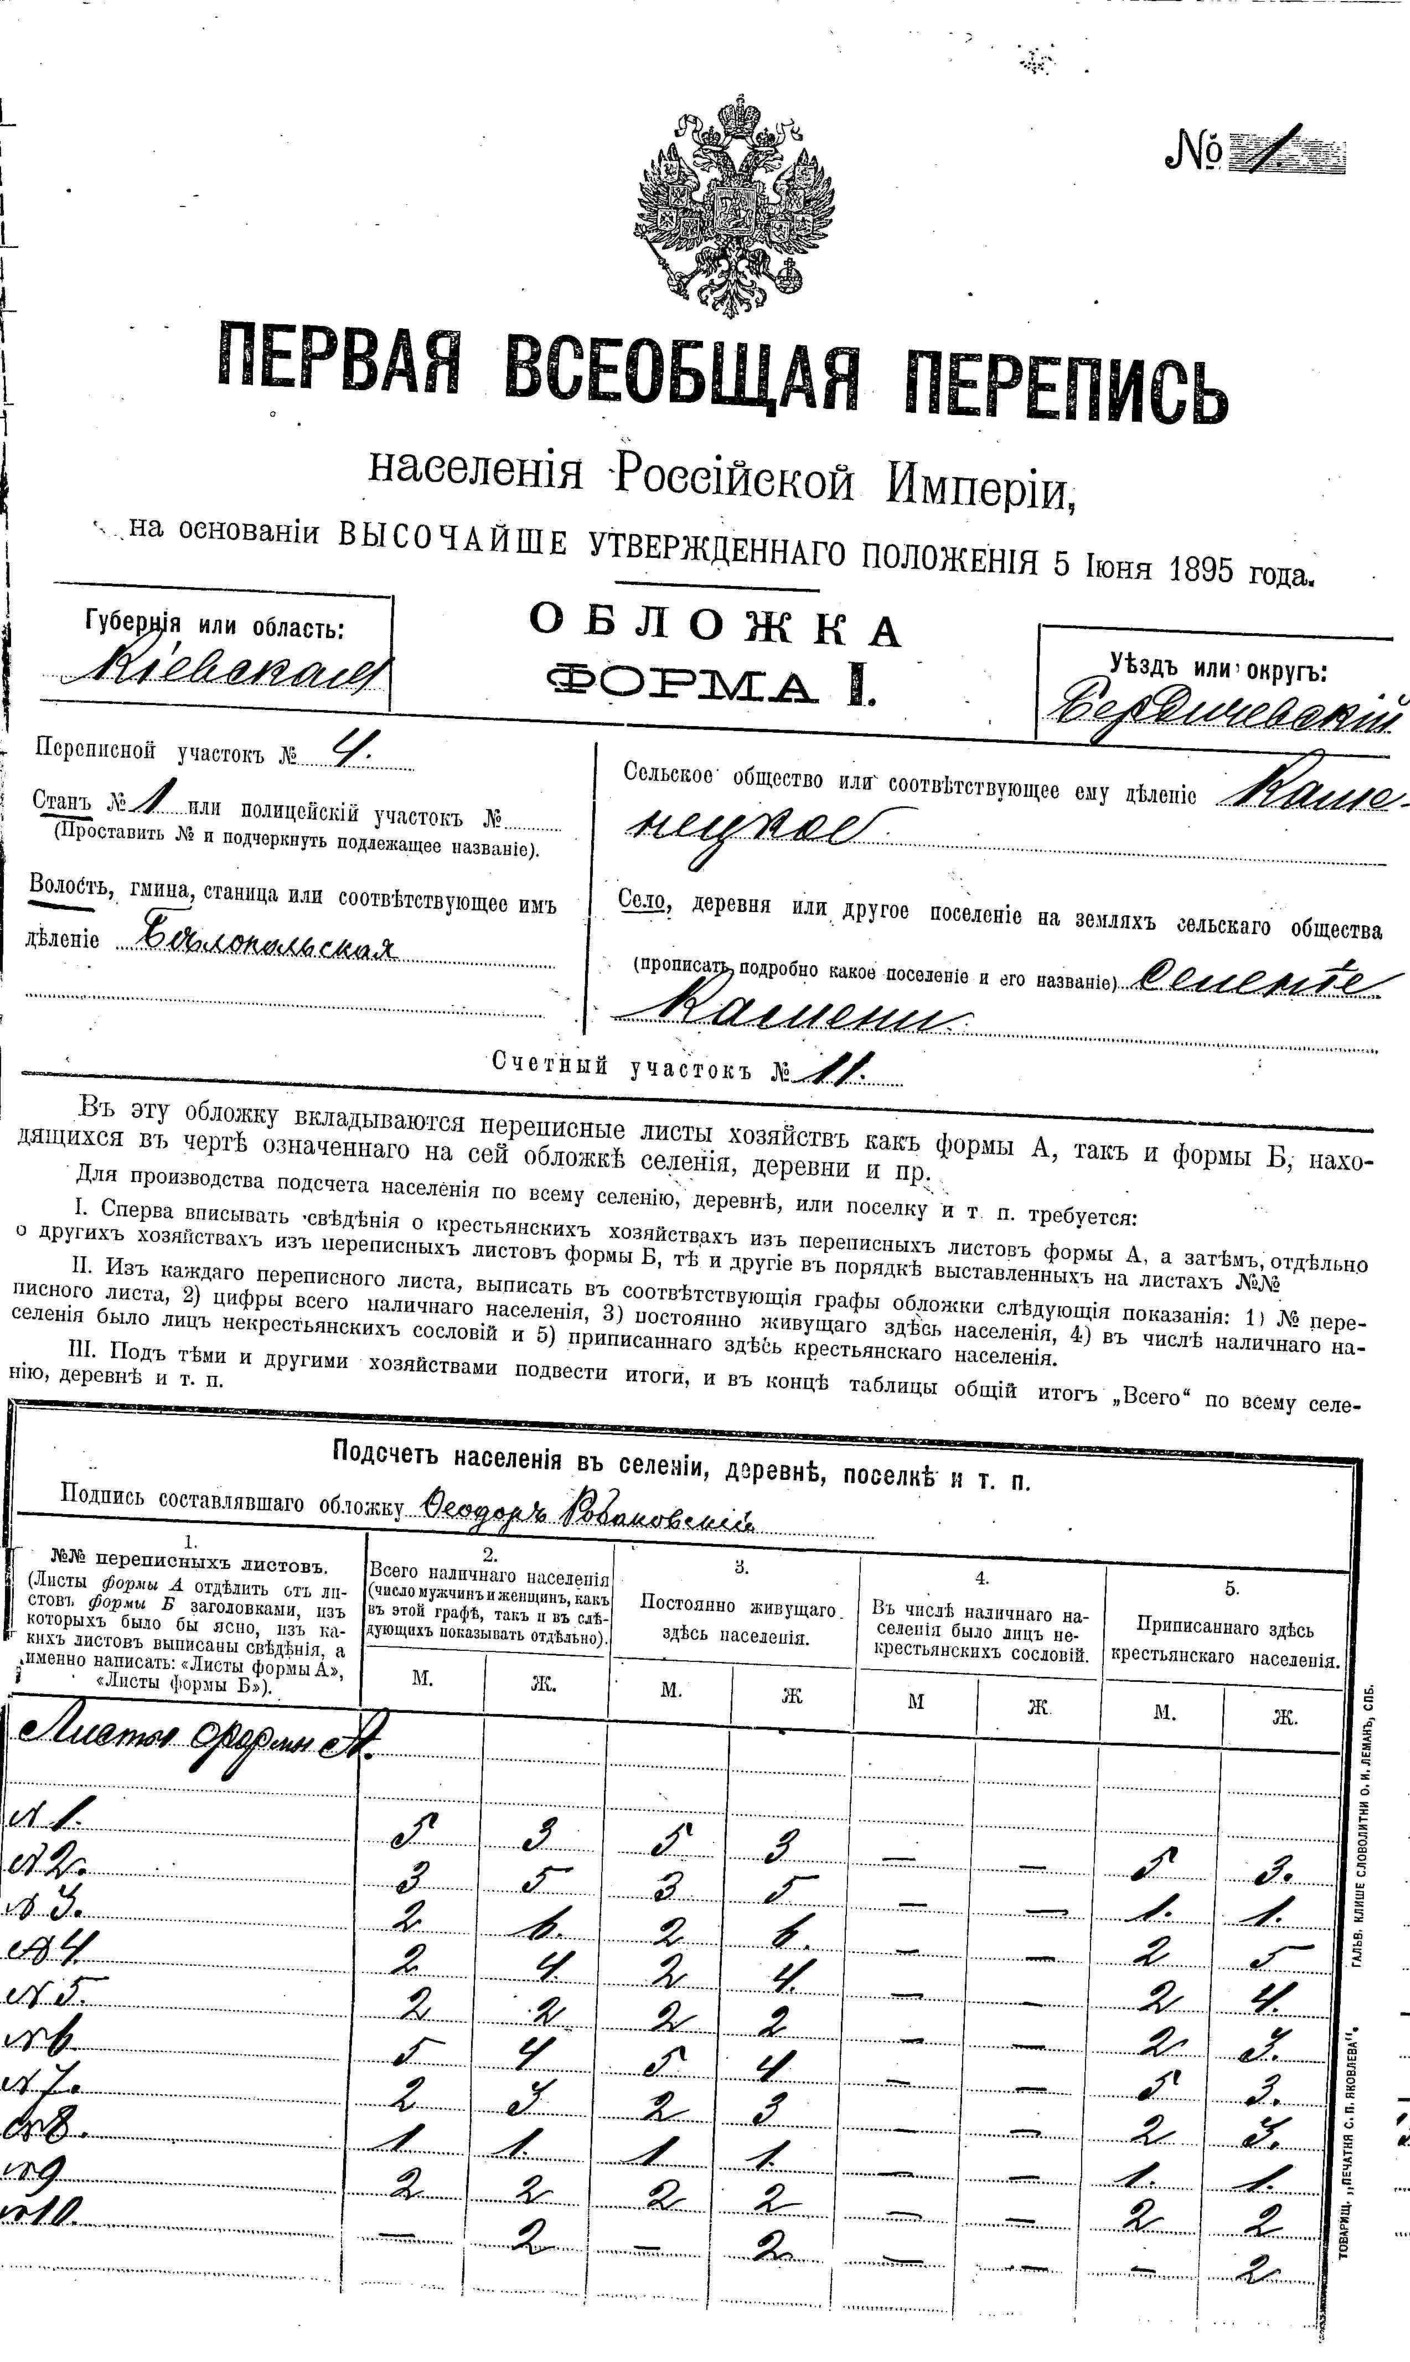 № 1.
ПЕРВАЯ ВСЕОБЩАЯ ПЕРЕПИСЬ
населенія Россійской Имперіи,
на основаніи ВЫСОЧАЙШЕ УТВЕРЖДЕННАГО ПОЛОЖЕНІЯ 5 Іюня 1895 года.
ОБЛОЖКА
ФОРМА I.
Губернія или область:
Кіевская
Уѣздъ или округъ:
Бердичевскій
Переписной участокъ № 4.
Станъ № 1 или полицейскій участокъ №
(Проставить № и подчеркнуть подлежащее названіе).
Волость, гмина, станица или соотвѣтствующее имъ
дѣленіе Бѣлопольская
Сельское общество или соотвѣтствующее ему дѣленіе Каме-
нецкое
Село, деревня или другое поселеніе на земляхъ сельскаго общества
(прописать подробно какое поселеніе и его названіе) Селеніе
Камени
Счетный участокъ № 11.
Въ эту обложку вкладываются переписные листы хозяйствъ какъ формы А, такъ и формы Б, нахо-
дящихся въ чертѣ означеннаго на сей обложкѣ селенія, деревни и пр.
Для производства подсчета населенія по всему селенію, деревнѣ, или поселку и т. п. требуется:
I. Сперва вписывать свѣдѣнія о крестьянскихъ хозяйствахъ изъ переписныхъ листовъ формы А, а затѣмъ, отдѣльно
о другихъ хозяйствахъ изъ переписныхъ листовъ формы Б, тѣ и другіе въ порядкѣ выставленныхъ на листахъ №№
II. Изъ каждаго переписного листа, выписать въ соотвѣтствующія графы обложки слѣдующія показанія: 1) № пере-
писного листа, 2) цифры всего наличнаго населенія, 3) постоянно живущаго здѣсь населенія, 4) въ числѣ наличнаго на-
селенія было лицъ некрестьянскихъ сословій и 5) приписаннаго здѣсь крестьянскаго населенія.
III. Подъ тѣми и другими хозяйствами подвести итоги, и въ концѣ таблицы общій итогъ „Всего“ по всему селе-
нію, деревнѣ и т. п.
Подсчетъ населенія въ селеніи, деревнѣ, поселкѣ и т. п.
Подпись составлявшаго обложку Ѳеодоръ
1.
№№ переписныхъ листовъ.
(Листы формы А отдѣлить отъ ли-
стовъ формы Б заголовками, изъ
которыхъ было бы ясно, изъ ка-
кихъ листовъ выписаны свѣдѣнія, а
именно написать: «Листы формы А»,
«Листы формы Б»).
2.
Всего наличнаго населенія
(число мужчинъ и женщинъ, какъ
въ этой графѣ, такъ и въ слѣ-
дующихъ показывать отдѣльно).
М. Ж.
3.
Постоянно живущаго
здѣсь населенія.
М. Ж
4.
Въ числѣ наличнаго на-
селенія было лицъ не-
крестьянскихъ сословій.
М Ж
5.
Приписаннаго здѣсь
крестьянскаго населенія.
М. Ж.
Листы формы А.
№ 1. 5 3 5 3 — — 5 3.
№ 2. 3 5 3 5 — — 1. 1.
№ 3. 2 6. 2 6. — — 2 5
№ 4. 2 4. 2 4. — — 2 4.
№ 5. 2 2 2 2 — — 2 3.
№ 6 5 4 5 4 — — 5 3.
№ 7. 2 3 2 3 — — 2 3.
№ 8. 1 1. 1 1. — — 1. 1.
№ 9 2 2 2 2 — — 2 2
№ 10. — 2 — 2 — — — 2
ТОВАРИЩ. „ПЕЧАТНЯ С. П. ЯКОВЛЕВА“. ГАЛЬВ. КЛИШЕ СЛОВОЛИТНИ О. И. ЛЕМАНЪ, СПБ.